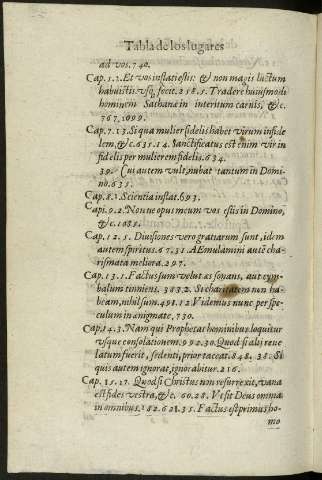 Tabla de los lugares
ad vos. 740.
Cap. 5. 2. Et vos inflati estis: & non magis luctum
habuistis usq; fecit. 258. 5. Tradere huiusmodi
hominem Sathanæ in interitum carnis, &c.
767. 1099.
Cap. 7. 13. Si qua mulier fidelis habet virum infide
lem, &c. 635. 14. Sanctificatus est enim vir in
fidelis per mulierem fidelis. 634.
39. Cui autem vult, nubat tantum in Domi
no. 635.
Cap. 8. 1. Scientia inflat. 693.
Capi. 9. 2. Nonne opus meum vos estis in Domino,
&c. 1035.
Cap. 12. 5. Divisiones vero gratiarum sunt, idem
autem spiritus. 67. 31. Æmulamini autē cha
rismata meliora. 297.
Cap. 13. 1. Factus sum velut æs sonans, aut cym
balum tinniens. 383. 2. Si charitatem non ha
beam, nihil sum. 491. 12 Videmus nunc per spe
culum in ænigmate, 730.
Cap. 14. 3. Nam qui Prophetat hominibus loquitur
usque consolationem. 992. 30. Quod si alij reve
latum fuerit, sedenti, prior taceat. 848. 38. Si
quis autem ignorat, ignorabitur. 216.
Cap. 15. 17. Quod si Christus non resurrexit, vana
est fides vestra, &c. 60. 28. Ut sit Deus omnia
in omnibus. 182. 621. 35. Factus est primus ho-
mo